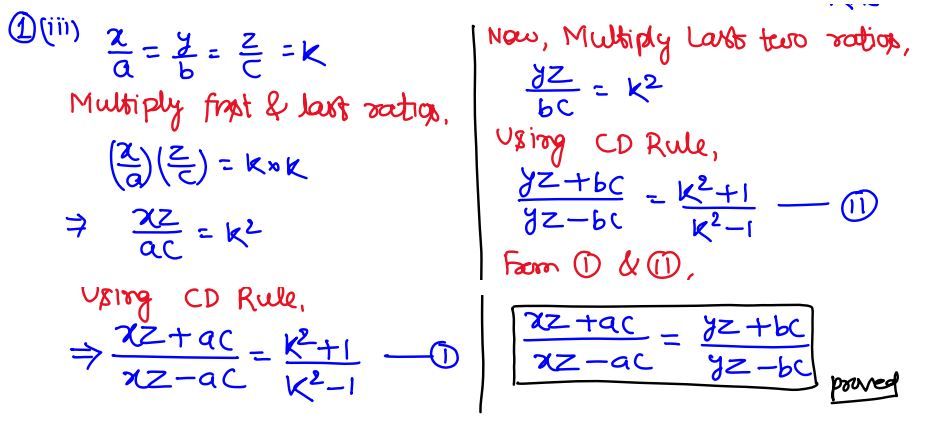 ① (iii) x/a = y/b = z/c = k
Multiply first & last ratios,
(x/a)(z/c) = k × k
⇒ xz/ac = k²
Using CD Rule,
⇒ xz+ac/xz-ac = k²+1/k²-1 —— ①
Now, Multiply Last two ratios,
yz/bc = k²
Using CD Rule,
yz+bc/yz-bc = k²+1/k²-1 —— ⑪
From ① & ⑪,
xz+ac/xz-ac = yz+bc/yz-bc
proved